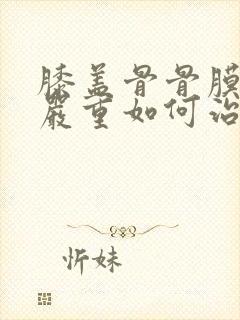 膝盖骨骨膜
严重如何治
忻妹